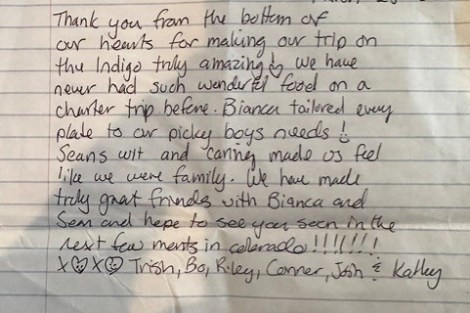 Thank you from the bottom of
our hearts for making our trip on
the Indigo truly amazing! we have
never had such wonderful food on a
charter trip before. Bianca tailored every
plate to our picky boys needs!
Seans wit and caring made us feel
like we were family. We have made
truly great friends with Bianca and
Sean and hope to see you soon in the
next few months in colorado!!!!!!!!
X♡X☺ Trish, Bo, Riley, Conner, Josh & Kathy